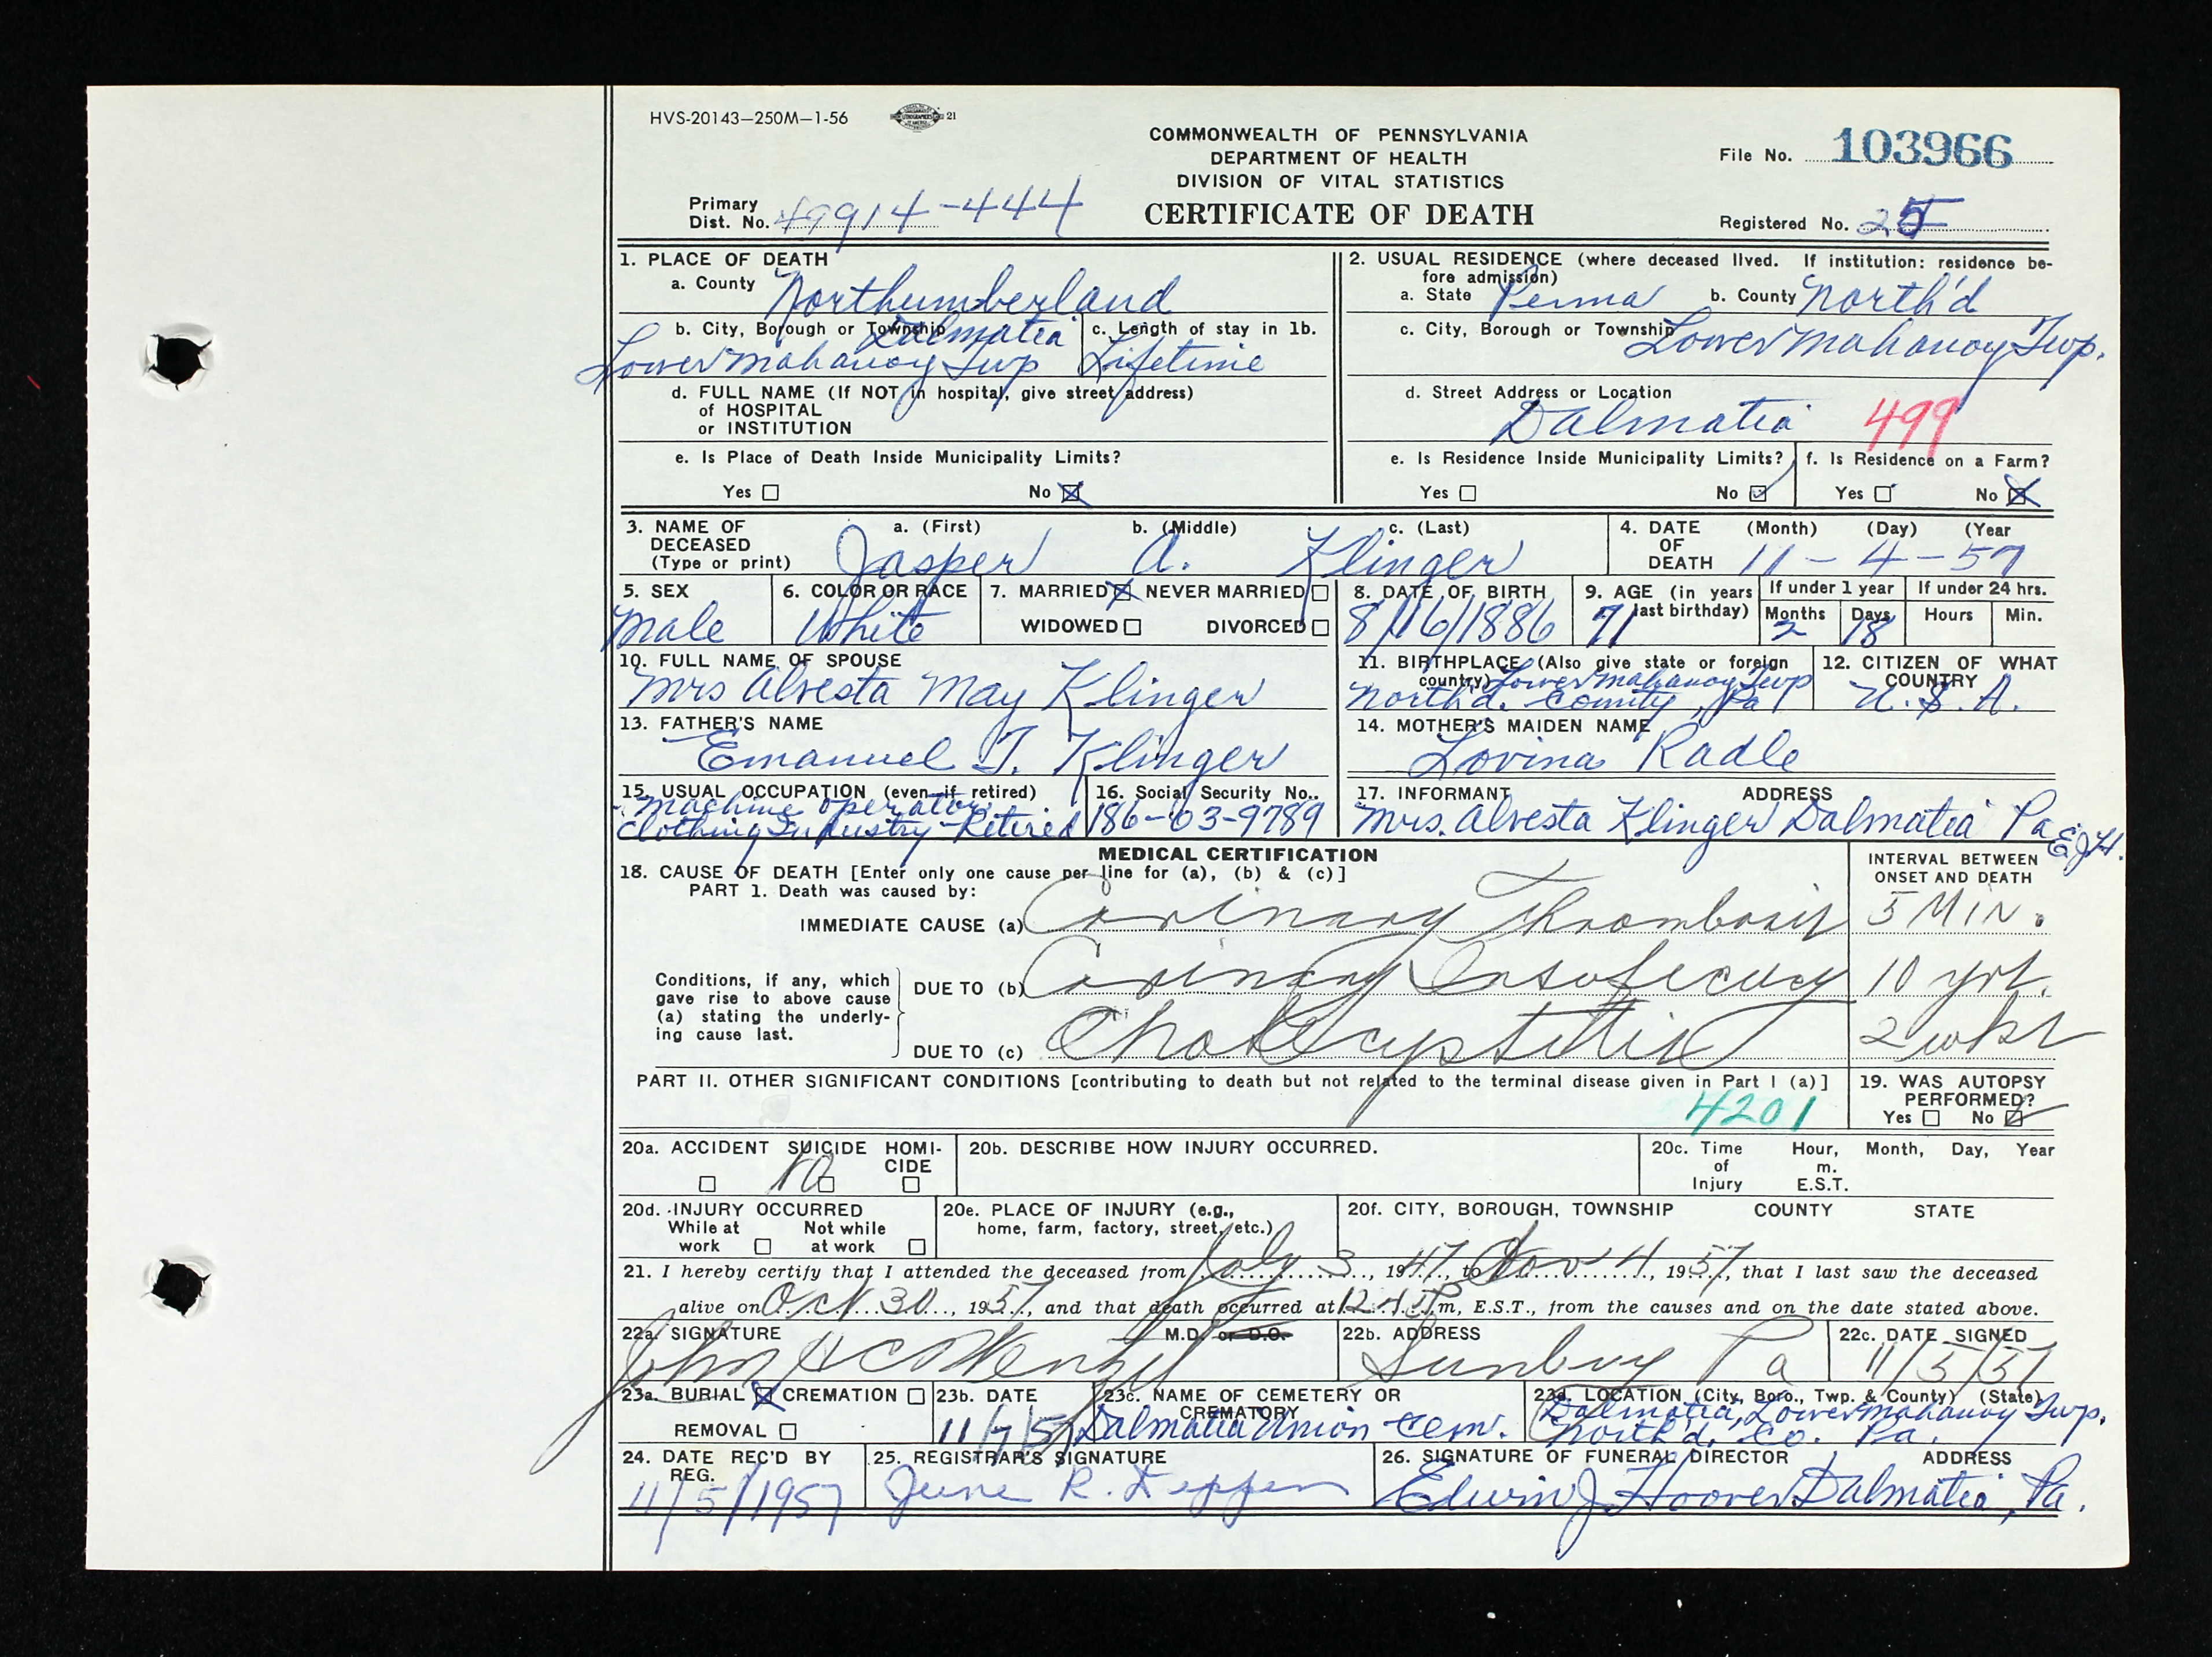 HVS-20143—250M—1-56
21
COMMONWEALTH OF PENNSYLVANIA
DEPARTMENT OF HEALTH
DIVISION OF VITAL STATISTICS
CERTIFICATE OF DEATH
File No. 103966
Primary
Dist. No. 49914-444
Registered No. 25
1. PLACE OF DEATH
a. County Northumberland
b. City, Borough or Township Dalmatia
Lower Mahanoy Twp
c. Length of stay in 1b.
Lifetime
d. FULL NAME (If NOT in hospital, give street address)
of HOSPITAL
or INSTITUTION
e. Is Place of Death Inside Municipality Limits?
Yes ☐ No ☒
2. USUAL RESIDENCE (where deceased lived. If institution: residence be-
fore admission)
a. State Penna b. County North'd
c. City, Borough or Township Lower Mahanoy Twp.
d. Street Address or Location
Dalmatia 499
e. Is Residence Inside Municipality Limits?
Yes ☐ No ☑
f. Is Residence on a Farm?
Yes ☐ No ☒
3. NAME OF DECEASED (Type or print)
a. (First) b. (Middle) c. (Last)
Jasper A. Klinger
4. DATE OF DEATH (Month) (Day) (Year
11-4-57
5. SEX
Male
6. COLOR OR RACE
White
7. MARRIED ☒ NEVER MARRIED ☐
WIDOWED ☐ DIVORCED ☐
8. DATE OF BIRTH
8/16/1886
9. AGE (in years last birthday)
71
If under 1 year
Months Days
2 18
If under 24 hrs.
Hours Min.
10. FULL NAME OF SPOUSE
Mrs Alvesta May Klinger
11. BIRTHPLACE (Also give state or foreign
country) Lower Mahanoy Twp
North'd. County, Pa
12. CITIZEN OF WHAT COUNTRY
U.S.A.
13. FATHER'S NAME
Emanuel T. Klinger
14. MOTHER'S MAIDEN NAME
Lovina Radle
15. USUAL OCCUPATION (even if retired)
Machine operator
Clothing Industry-Retired
16. Social Security No..
186-03-9789
17. INFORMANT ADDRESS
Mrs. Alvesta Klinger Dalmatia Pa
E.J.H.
MEDICAL CERTIFICATION
18. CAUSE OF DEATH [Enter only one cause per line for (a), (b) & (c)]
PART 1. Death was caused by:
INTERVAL BETWEEN
ONSET AND DEATH
IMMEDIATE CAUSE (a) Corinary Thrombosis 5 MIN.
Conditions, if any, which
gave rise to above cause
(a) stating the underly-
ing cause last.
DUE TO (b) Corinary Insuficiency 10 yrs.
DUE TO (c) Cholecystitis 2 wks
PART II. OTHER SIGNIFICANT CONDITIONS [contributing to death but not related to the terminal disease given in Part I (a)]
4201
19. WAS AUTOPSY
PERFORMED?
Yes ☐ No ☑
20a. ACCIDENT SUICIDE HOMI-
CIDE
☐ no ☐ ☐
20b. DESCRIBE HOW INJURY OCCURRED.
20c. Time of Injury Hour, m. E.S.T. Month, Day, Year
20d. INJURY OCCURRED
While at work ☐ Not while at work ☐
20e. PLACE OF INJURY (e.g.,
home, farm, factory, street, etc.)
20f. CITY, BOROUGH, TOWNSHIP COUNTY STATE
21. I hereby certify that I attended the deceased from July 3, 1947, to Nov 4, 1957, that I last saw the deceased
alive on Oct 30, 1957, and that death occurred at 12:45 Pm, E.S.T., from the causes and on the date stated above.
22a. SIGNATURE M.D. or D.O.
John
22b. ADDRESS
Sunbury Pa
22c. DATE SIGNED
11/5/57
23a. BURIAL ☒ CREMATION ☐
REMOVAL ☐
23b. DATE
11/7/57
23c. NAME OF CEMETERY OR
CREMATORY
Dalmatia Union Cem.
23d. LOCATION (City, Boro., Twp. & County) (State)
Dalmatia, Lower Mahanoy Twp.
North'd. Co. Pa.
24. DATE REC'D BY
REG.
11/5/1957
25. REGISTRAR'S SIGNATURE
June R. Deppen
26. SIGNATURE OF FUNERAL DIRECTOR ADDRESS
Edwin J. Hoover Dalmatia, Pa.